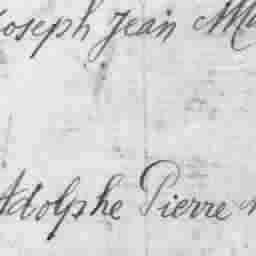 Joseph Jean
Adolphe Pierre